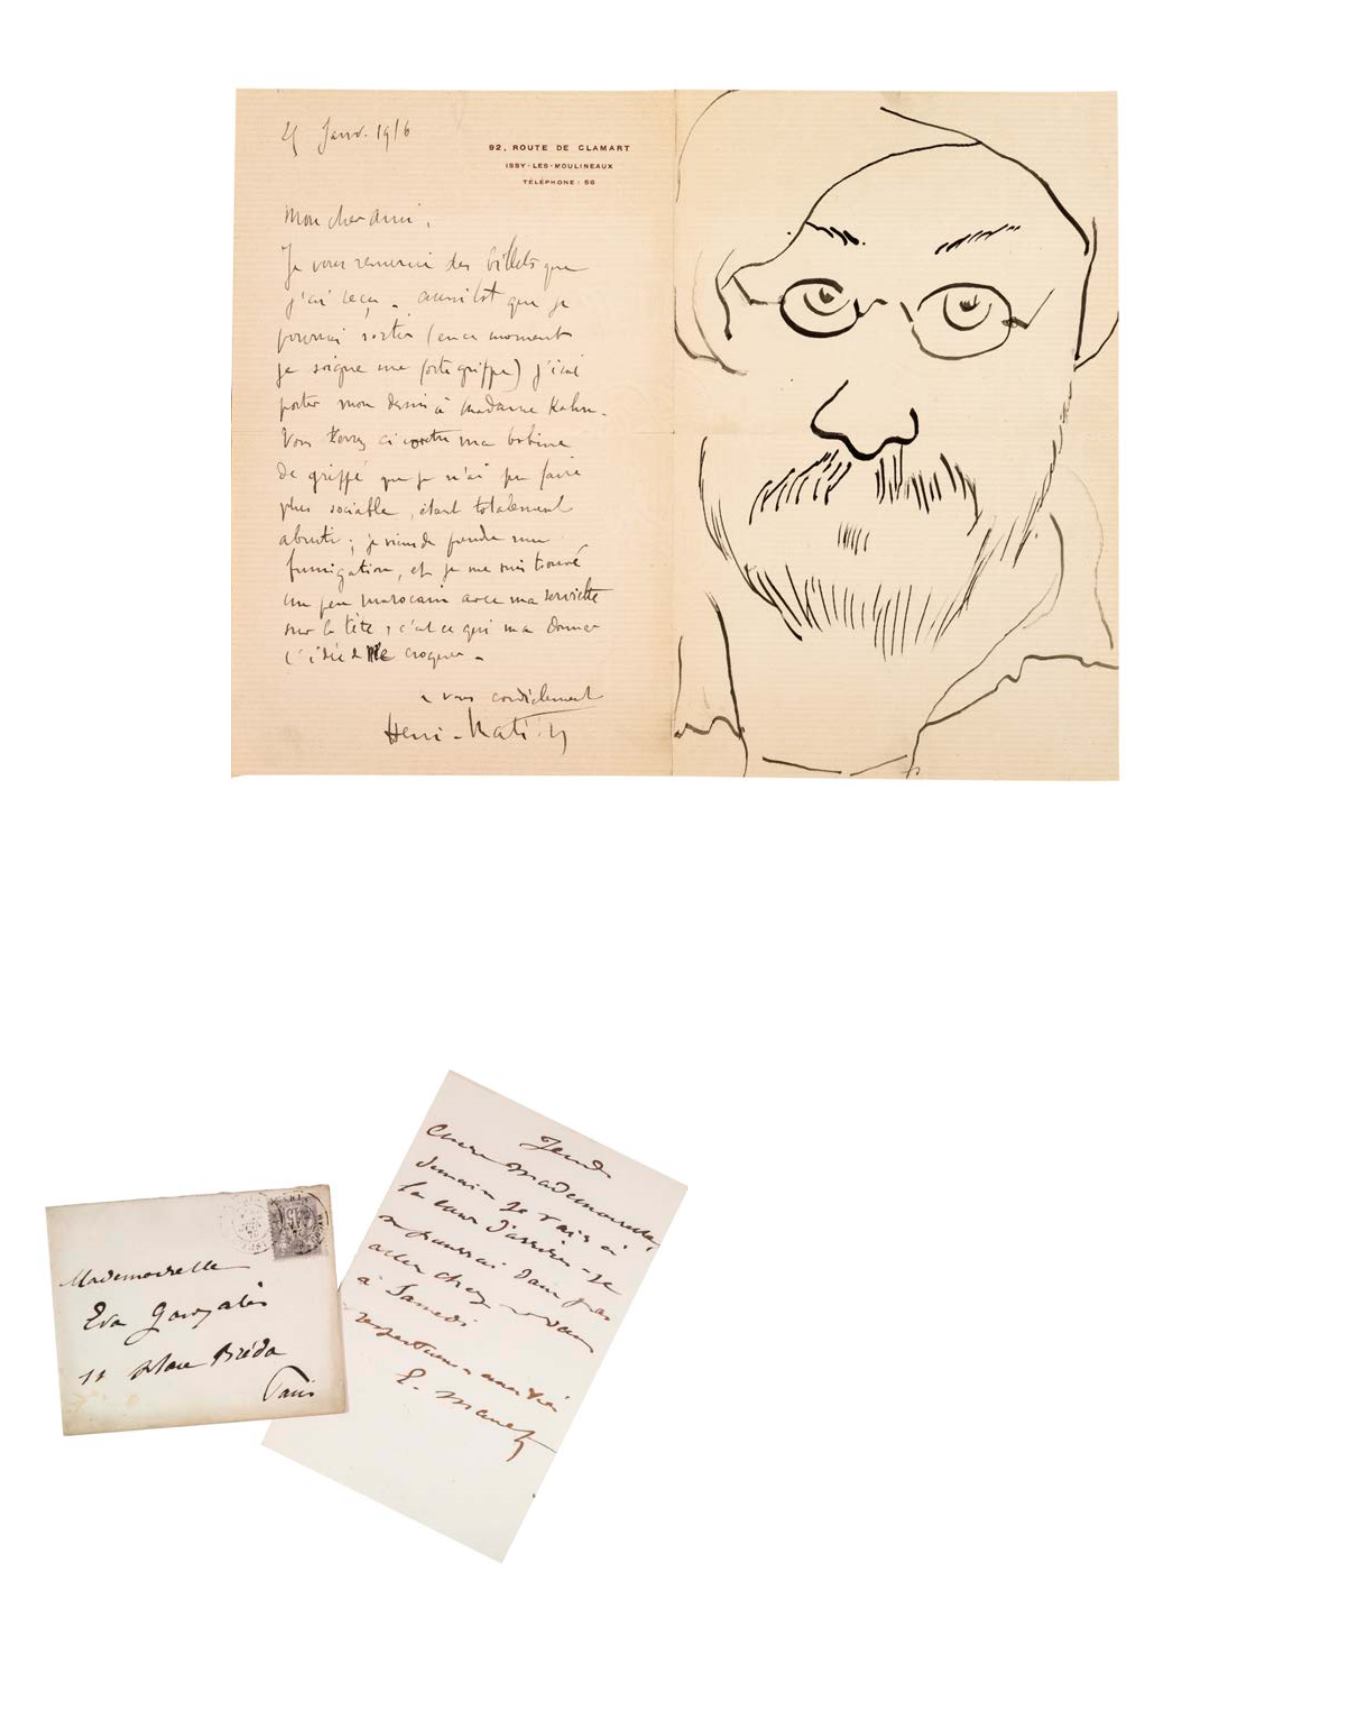 25 Janv. 1916
92, ROUTE DE CLAMART
ISSY-LES-MOULINEAUX
TÉLÉPHONE : 56
Mon cher ami,
Je vous remercie des billets que
j'ai reçu. aussitôt que je
pourrai sortir (en ce moment
je soigne une forte grippe) j'irai
porter mon dessin à Madame Kahn.
Vous verrez ci contre ma bobine
de grippé que je n'ai pu faire
plus sociable, étant totalement
abruti ; je viens de prendre une
fumigation, et je me suis trouvé
un peu marocain avec ma serviette
sur la tête, c'est ce qui m'a donné
l'idée de me croquer.
à vous cordialement
Henri-Matisse
Jeudi
Chère Mademoiselle,
demain je vais à
la cour d'assises - je
ne pourrai donc pas
aller chez vous
à Samedi
E. Manet
Mademoiselle
Eva Gonzalès
11 place Bréda
Paris
15